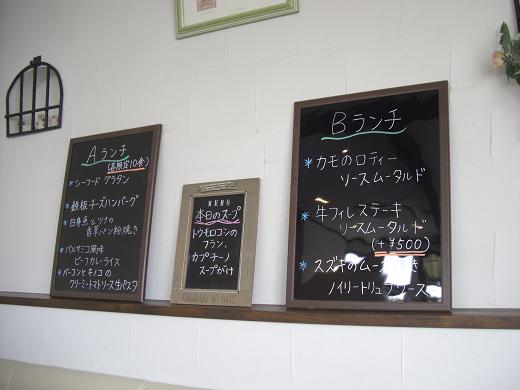 Aランチ
(各限定10食)
*シーフード グラタン
*鉄板チーズハンバーグ
*白身魚とツナの
香草パン粉焼き
*バルサミコ風味
ビーフカレーライス
*ベーコンとキノコの
クリーミートマトソース生パスタ
MEMO
本日のスープ
トウモロコシの
フラン、
カプチーノ
スープがけ
Bランチ
*カモのロティー
ソースムータルド
*牛フィレステーキ
ソースムータルド
(+¥500)
*スズキのム
き
ノイリートリュフソース